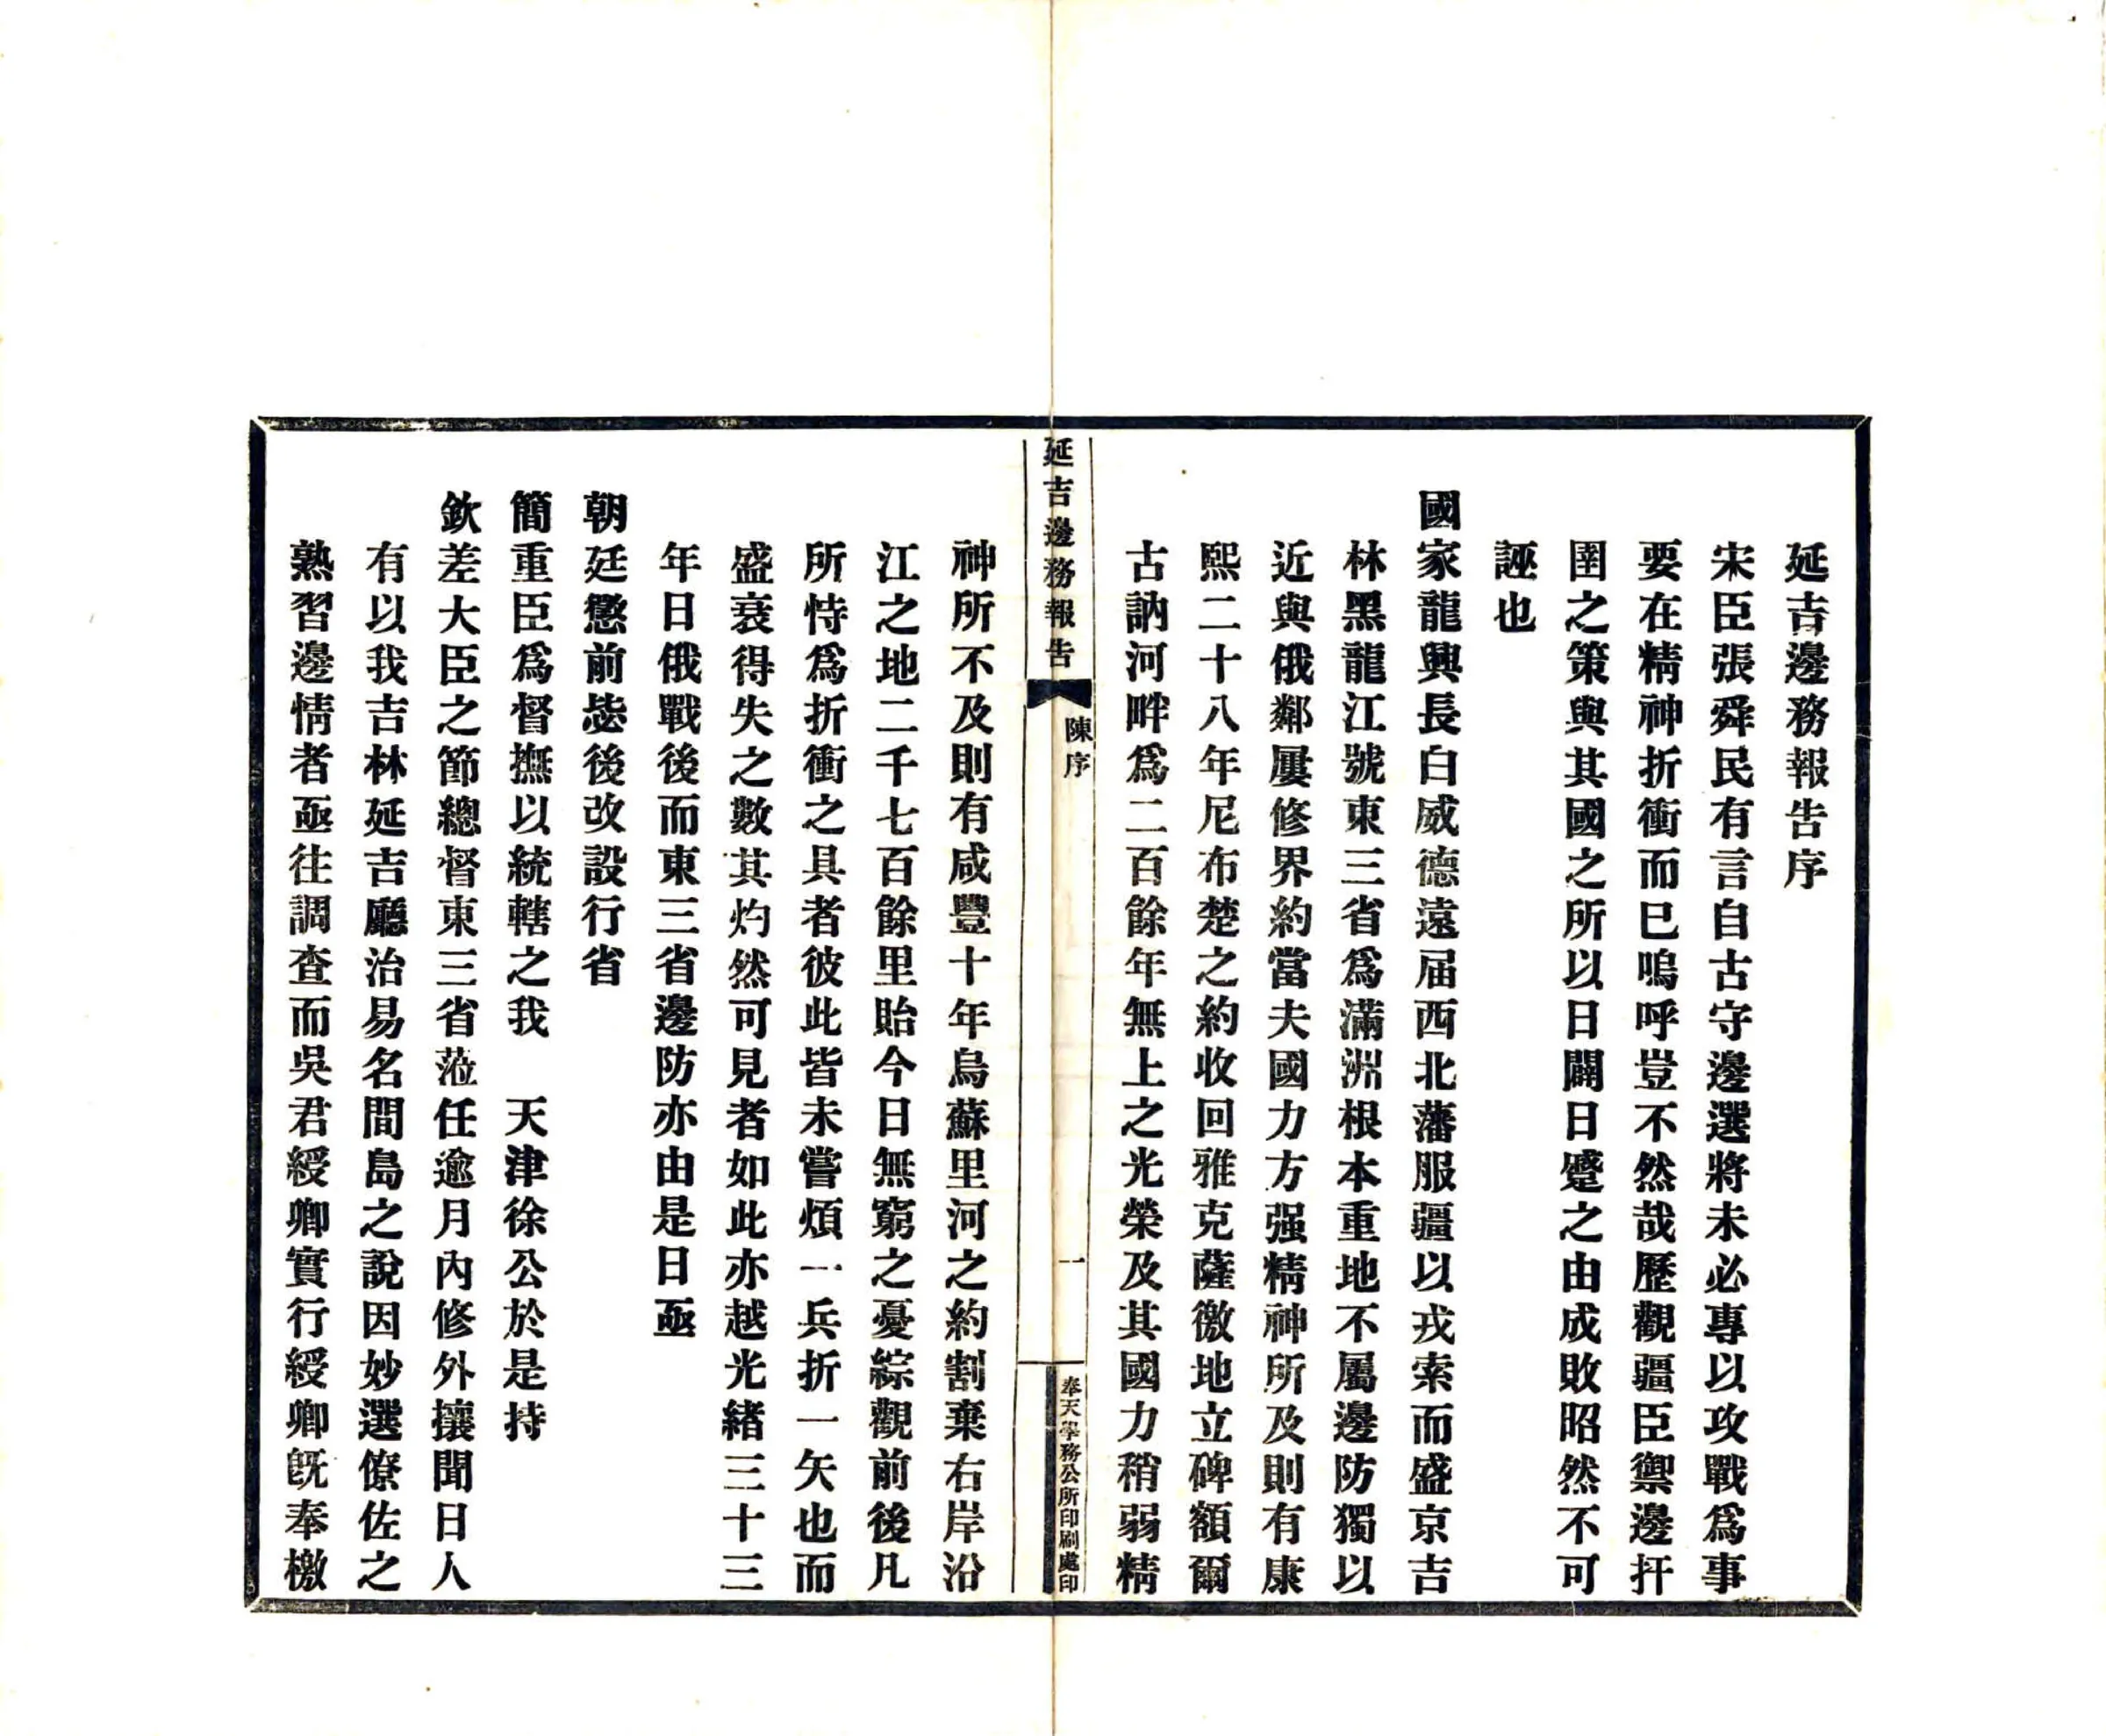 延吉邊務報告序
宋臣張舜民有言自古守邊選將未必專以攻戰爲事
要在精神折衝而已嗚呼豈不然哉歷觀疆臣禦邊扞
圉之策與其國之所以日闢日蹙之由成敗昭然不可
誣也
國家龍興長白威德遠届西北藩服疆以戎索而盛京吉
林黑龍江號東三省爲滿洲根本重地不屬邊防獨以
近與俄鄰屢修界約當夫國力方强精神所及則有康
熙二十八年尼布楚之約收回雅克薩徼地立碑額爾
古訥河畔爲二百餘年無上之光榮及其國力稍弱精
延吉邊務報告
陳序
一
奉天學務公所印刷處印
神所不及則有咸豐十年烏蘇里河之約割棄右岸沿
江之地二千七百餘里貽今日無窮之憂綜觀前後凡
所恃爲折衝之具者彼此皆未嘗煩一兵折一矢也而
盛衰得失之數其灼然可見者如此亦越光緒三十三
年日俄戰後而東三省邊防亦由是日亟
朝廷懲前毖後改設行省
簡重臣爲督撫以統轄之我　天津徐公於是持
欽差大臣之節總督東三省蒞任逾月內修外攘聞日人
有以我吉林延吉廳治易名間島之說因妙選僚佐之
熟習邊情者亟往調查而吳君綬卿實行綬卿旣奉檄